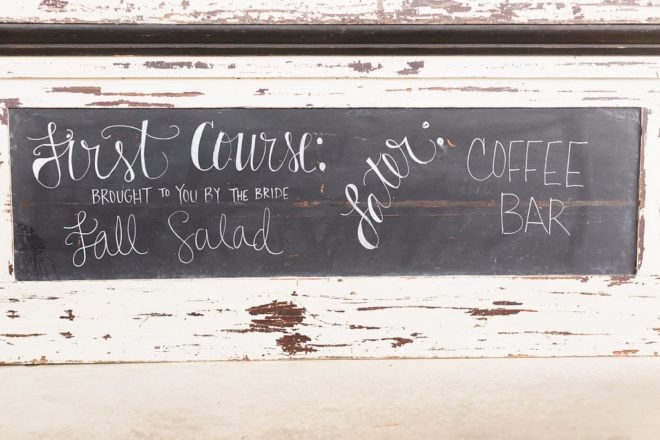 First Course:
BROUGHT TO YOU BY THE BRIDE
Fall Salad
later:
COFFEE
BAR